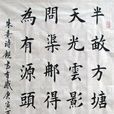 半畝方塘
天光雲影
問渠那得
為有源頭
朱熹詩觀書有感庚寅